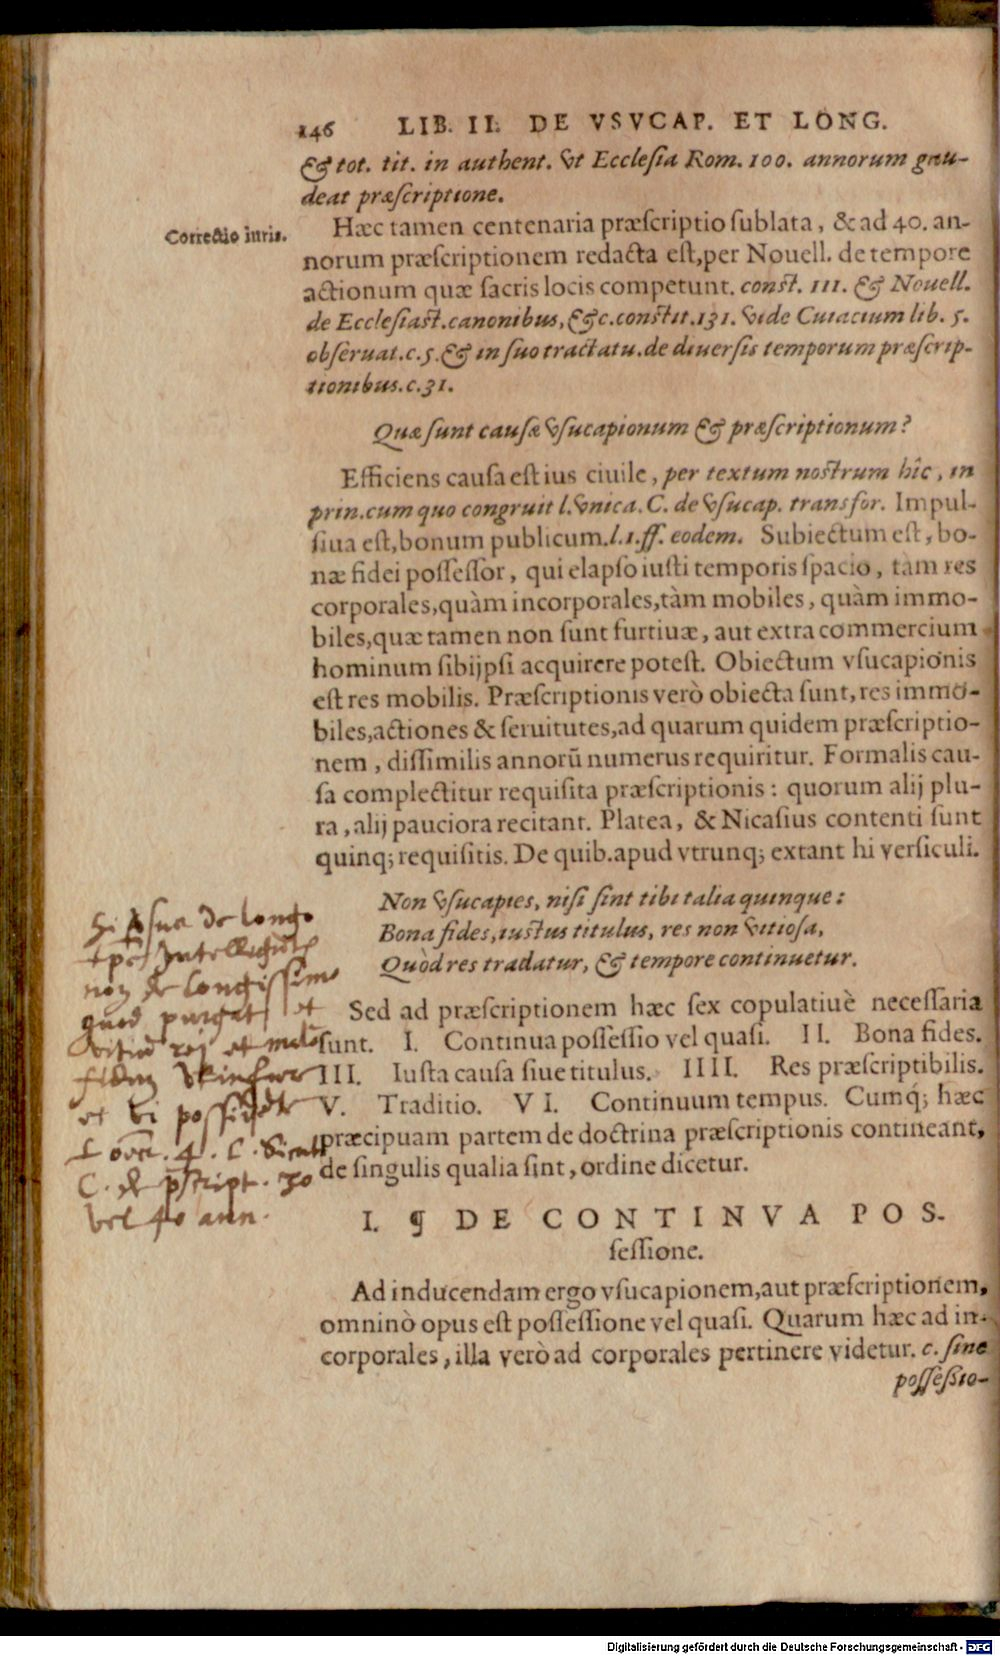 146 LIB. II. DE VSVCAP. ET LONG.
& tot. tit. in authent. vt Ecclesia Rom. 100. annorum gau-
deat præscriptione.
Correctio iuris.
Hæc tamen centenaria præscriptio sublata, & ad 40. an-
norum præscriptionem redacta est, per Nouell. de tempore
actionum quæ sacris locis competunt. const. 111. & Nouell.
de Ecclesiast. canonibus, &c. constit. 131. vide Cuiacium lib. 5.
obseruat. c. 5. & in suo tractatu. de diuersis temporum præscrip-
tionibus. c. 31.
Quæ sunt causæ vsucapionum & præscriptionum?
Efficiens causa est ius ciuile, per textum nostrum hîc, in
prin. cum quo congruit l. vnica. C. de vsucap. transfor. Impul-
siua est, bonum publicum. l. 1. ff. eodem. Subiectum est, bo-
næ fidei possessor, qui elapso iusti temporis spacio, tàm res
corporales, quàm incorporales, tàm mobiles, quàm immo-
biles, quæ tamen non sunt furtiuæ, aut extra commercium
hominum sibijpsi acquirere potest. Obiectum vsucapionis
est res mobilis. Præscriptionis verò obiecta sunt, res immo-
biles, actiones & seruitutes, ad quarum quidem præscriptio-
nem, dissimilis annorũ numerus requiritur. Formalis cau-
sa complectitur requisita præscriptionis: quorum alij plu-
ra, alij pauciora recitant. Platea, & Nicasius contenti sunt
quinq; requisitis. De quib. apud vtrunq; extant hi versiculi.
Non vsucapies, nisi sint tibi talia quinque:
Bona fides, iustus titulus, res non vitiosa,
Quòd res tradatur, & tempore continuetur.
de longo
Intelligunt
non de longissimo
quod purgat et
vitiũ rei et malã
fidem
et vi
C.
C. de pscript. 30
vel 40 ann.
Sed ad præscriptionem hæc sex copulatiuè necessaria
sunt. I. Continua possessio vel quasi. II. Bona fides.
III. Iusta causa siue titulus. IIII. Res præscriptibilis.
V. Traditio. VI. Continuum tempus. Cumq́; hæc
præcipuam partem de doctrina præscriptionis contineant,
de singulis qualia sint, ordine dicetur.
I. ¶ DE CONTINVA POS-
sessione.
Ad inducendam ergo vsucapionem, aut præscriptionem,
omninò opus est possessione vel quasi. Quarum hæc ad in-
corporales, illa verò ad corporales pertinere videtur. c. sine
possessio-
Digitalisierung gefördert durch die Deutsche Forschungsgemeinschaft - DFG